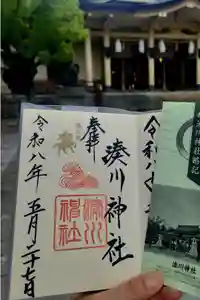 奉拝
湊川神社
令和八年
五月二十七日
湊川神社
令和八
湊川神社